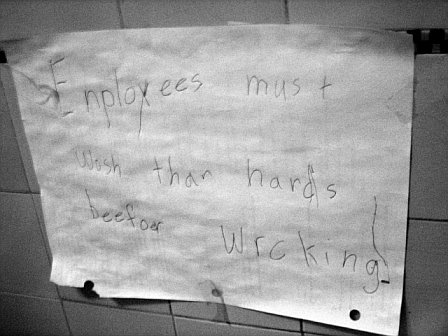 Enployees must
Wosh than hards
beefoer
Wrcking!